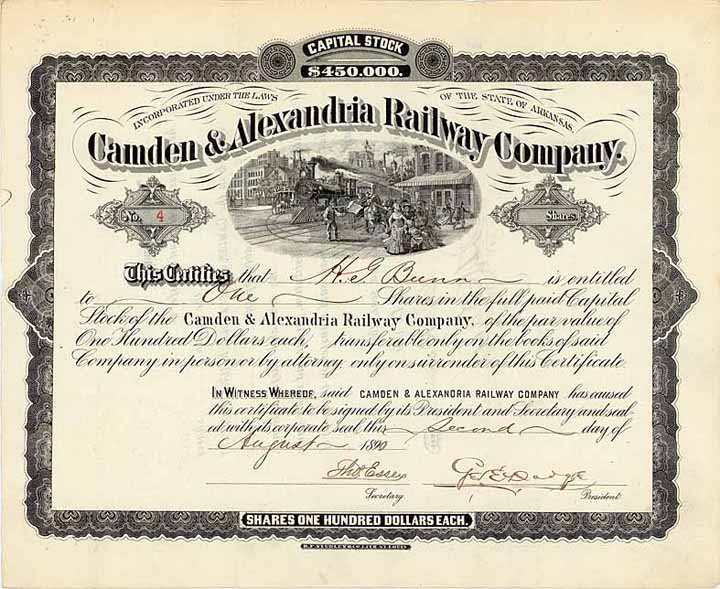 CAPITAL STOCK
$450,000.
INCORPORATED UNDER THE LAWS OF THE STATE OF ARKANSAS.
Camden & Alexandria Railway Company.
No. 4
Shares.
This Certifies, that H. G. Bunn is entitled
to One Shares in the full paid Capital
Stock of the Camden & Alexandria Railway Company, of the par value of
One Hundred Dollars each, transferable only on the books of said
Company in person or by attorney only on surrender of this Certificate.
IN WITNESS WHEREOF, said CAMDEN & ALEXANDRIA RAILWAY COMPANY has caused
this certificate to be signed by its President and Secretary and seal-
ed with its corporate seal this Second day of
August 1890
Tho. Essex Geo E Dodge
Secretary. President.
SHARES ONE HUNDRED DOLLARS EACH.
ST. LOUIS